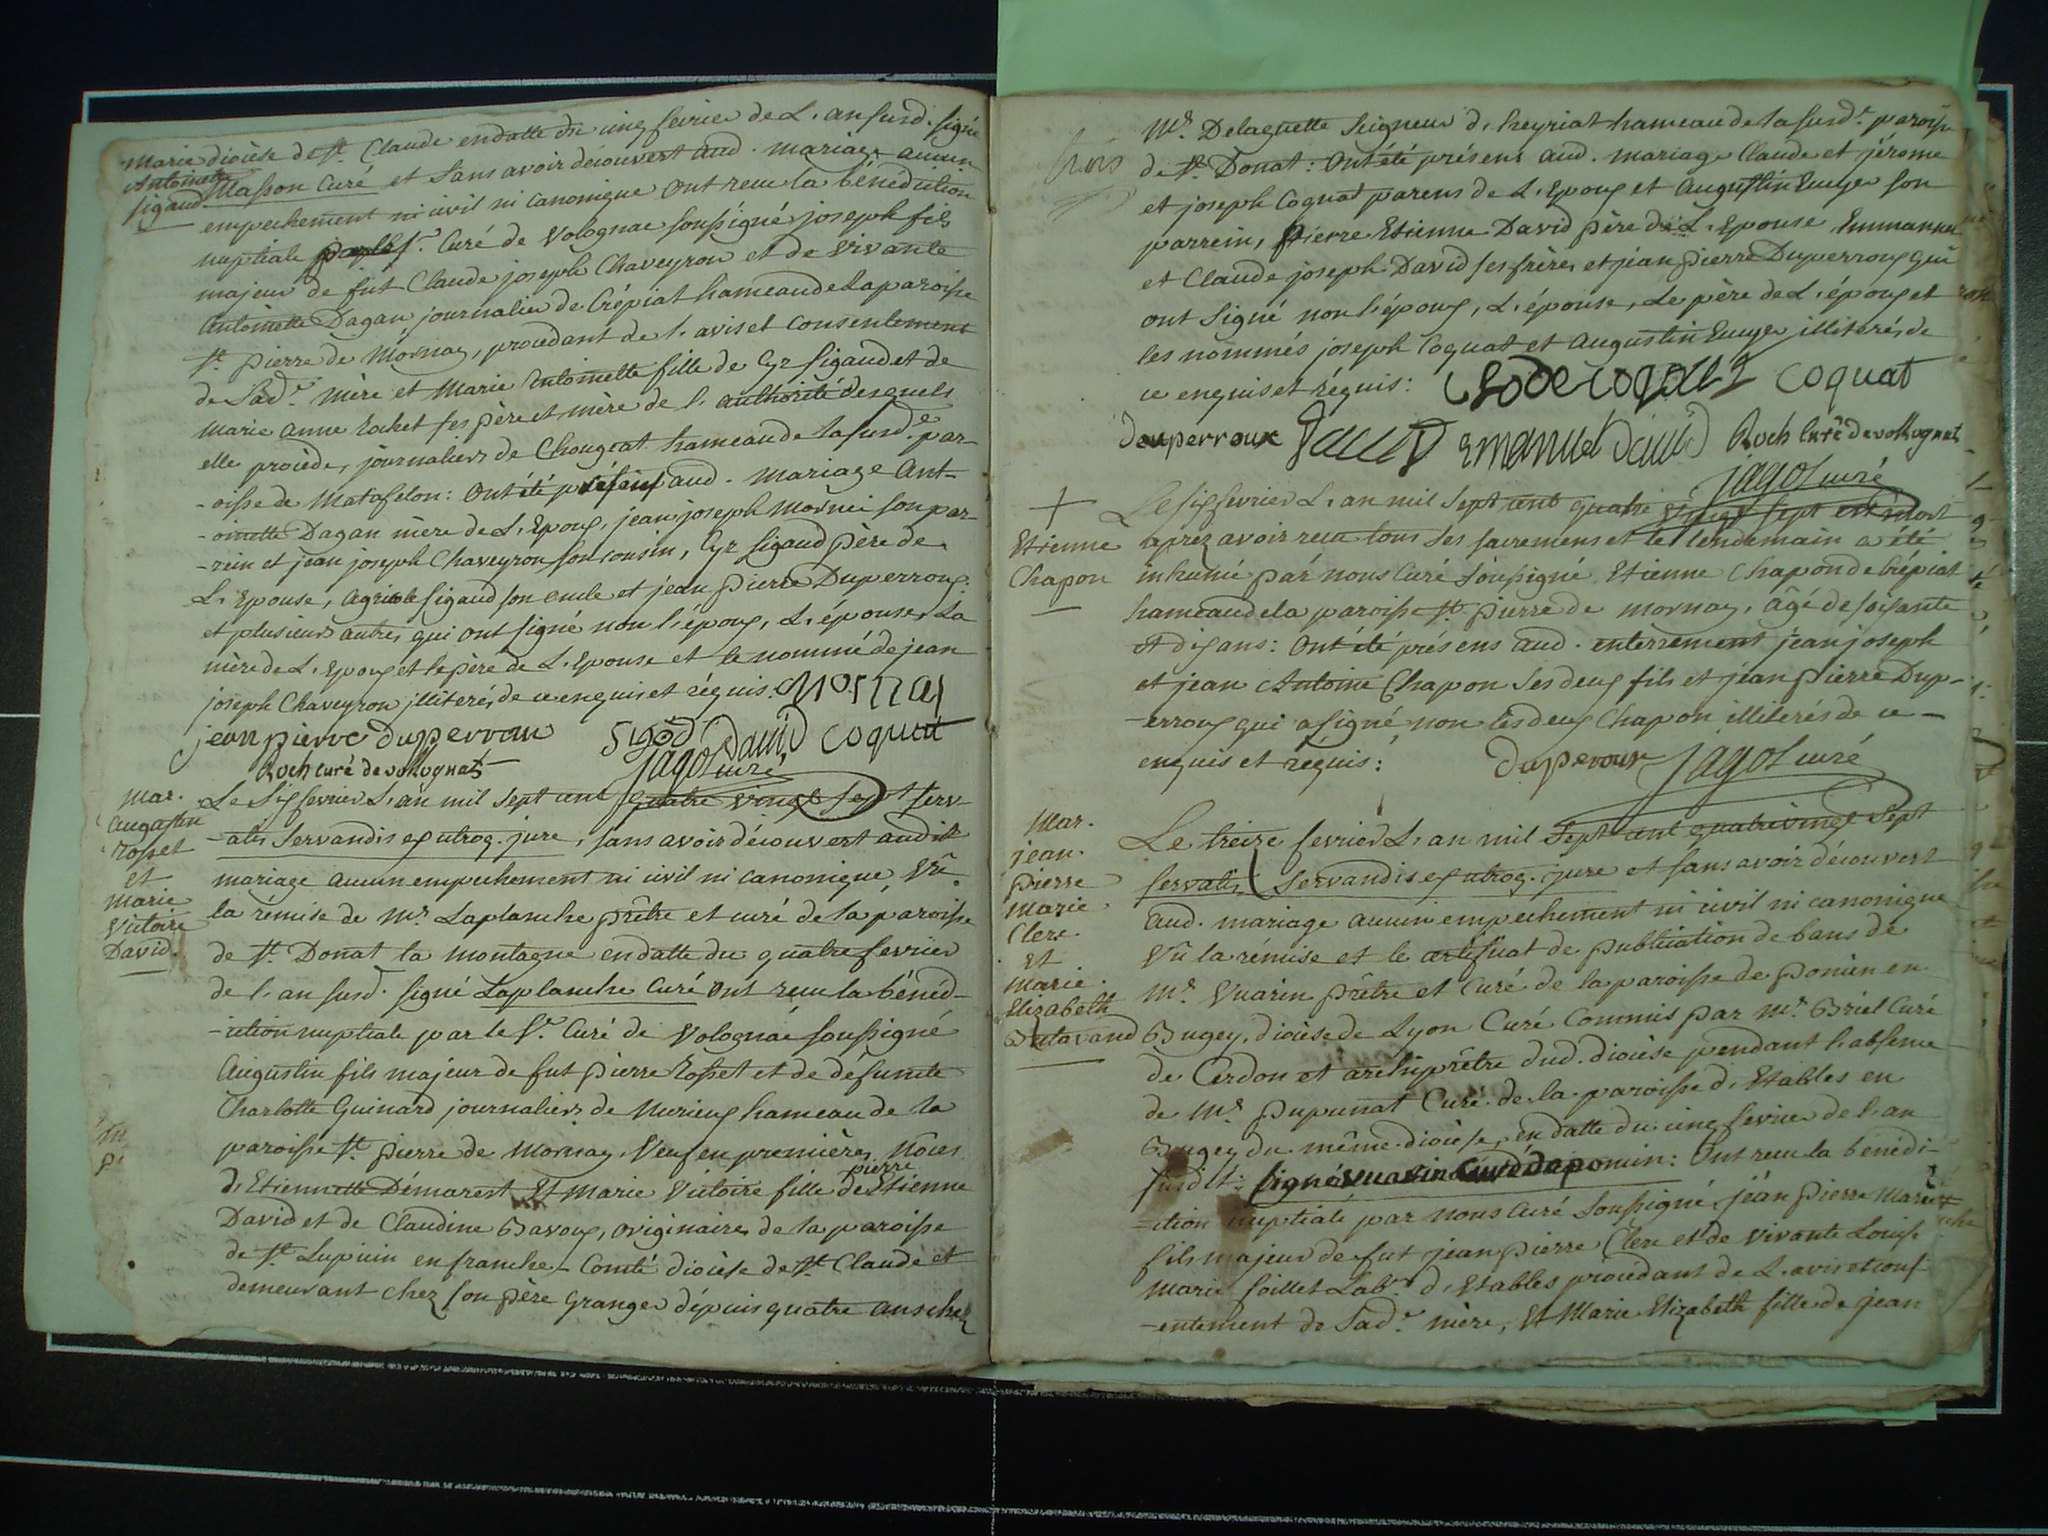 Marie diocèse de St. Claude endatte du cinq fevrier de L'an susd. signé
Antoinette
sigaud
Masson Curé et sans avoir découvert aud. mariage aucun
empechement ni civil ni canonique ont recu la bénédiction
nuptiale par le Sr. Curé de Volognac soussigné joseph fils
majeur de fut Claude joseph Chaveyron et de vivante
Antoinette Dagan, journalier de Crépiat hameau de la paroisse
St. pierre de Mornay, procédant de l'avis et consentement
de Sad.e mère et Marie Antoinette fille de Cyr Sigaud et de
Marie anne Rochet ses père et mère de l'authorité desquels
elle procède, journaliers de Chougeat hameau de la susd.e par-
-oisse de Matafelon: Ont été présens aud. mariage Ant-
-oinette Dagan mère de L'Epoux, jean joseph Mornei son par-
-rein et jean joseph Chaveyron son cousin, Cyr Sigaud père de
L'Epouse, agricole Sigaud son oncle et jean pierre Duperroux:
et plusieurs autres qui ont signé non l'époux, L'épouse, La
mère de L'Epoux et le père de L'Epouse et le nommé de jean
joseph Chaveyron illiterés de ce enquis et réquis. Mornay
jean pierre duperrou Sigod David Coquat
Roch curé de vollognat jagot curé
Mar.
augustin
rosset
et
Marie
Victoire
David.
Le Six fevrier L'an mil sept cent quatre vingt sept serv-
-atis servandis ex utroq. jure, sans avoir découvert audit
mariage aucun empechement ni civil ni canonique, Vû
la rémise de Mr. Laplanche prêtre et curé de la paroisse
de St. Donat la montagne endatte du quatre fevrier
de l'an susd. signé Laplanche Curé ont recu la bénéd-
-iction nuptiale par le Sr. Curé de Volognac soussigné
Augustin fils majeur de fut pierre Rosset et de défunte
Charlotte Guinard journaliers de Nurieux hameau de la
paroisse St. pierre de Mornay, Veuf en premières Nôces
d'Etiennette Démarest Et Marie Victoire fille de pierre Etienne
David et de Claudine Bavoux, originaires de la paroisse
de St. Lupicin en franche-Comté diocèse de St. Claude et
demeurant chez son père Granger dépuis quatre ans chez
trois
Mr. Delaguette Seigneur d'heyriat hameau de la susd.e paroisse
de St. Donat: Ont été présens aud. mariage Claude et jérome
et joseph Coquat parens de L'Epoux et Augustin Emyer son
parrein, pierre Etienne David père de L'Epouse, Emmanuel
et Claude joseph David ses frères et jean pierre Duperroux qui
ont Signé non l'époux, L'épouse, Le père de L'époux et
les nommés joseph Coquat et Augustin Emyer illiterés de
ce enquis et réquis: Coquat
douperroux David Emanuel David Roch Curé de vollognat
jagot curé
Etienne
Chapon
Le six fevrier L'an mil sept cent quatre vingt sept est mort
aprez avoir recu tous ses sacremens et le lendemain a été
inhumé par nous Curé soussigné Etienne Chapon de Crépiat
hameau de la paroisse St. pierre de Mornay, âgé de soixante
et dix ans: Ont été présens aud. enterrement jean joseph
et jean Antoine Chapon ses deux fils et jean pierre Dup-
-erroux qui a signé, non les deux Chapon illiterés de ce
enquis et réquis: duperoux jagot curé
Mar.
jean
pierre
Marie
Clerc
Et
Marie
Elizabeth
Butavand
Le treize fevrier L'an mil Sept cent quatre vingt Sept
servatis servandis ex utroq. jure et sans avoir découvert
aud. mariage aucun empechement ni civil ni canonique
Vû la rémise et le certificat de publication de bans de
Mr. Vuarin prêtre et Curé de la paroisse de Poncin en
Bugey, diocèse de Lyon Curé Commis par Mr. Briel Curé
de Cerdon et archiprêtre dud. diocèse pendant l'absence
de Mr. Pupunat Curé de la paroisse d'Etables en
Bugey du même diocèse, en datte du cinq fevrier de l'an
susdit: signé vuarin Curé de poncin: Ont recu la bénédi-
-ction nuptiale par nous Curé soussigné, jean pierre Marie
fils majeur de fut jean pierre Clerc et de vivante Louise
Marie Soillet Lab.r d'Etables procédant de L'avis et cons-
-entement de Sad.e mère, Et Marie Elizabeth fille de jean